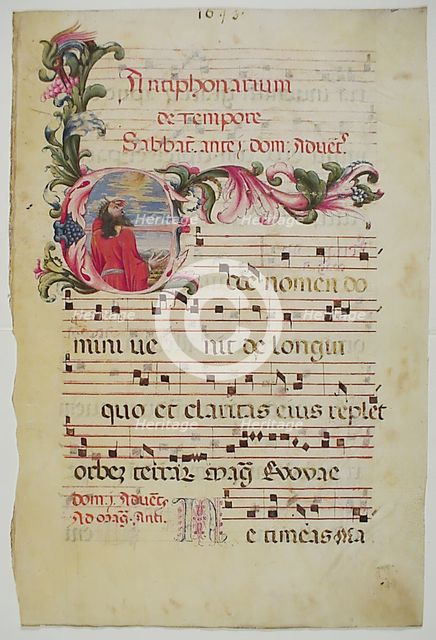 16 73
Antiphonarium
de tempore
Sabbat. ante j. dom. Advēt9
Ecce nomen do
mini ve nit de longin
quo et claritas eius replet
orbez terrar Mag Evovae
dom. j. Advēt9
Ad mag. Anti.
Ne timeas Ma
Heritage
Héritage
Heritage
Héritage
Heritage
Héritage
Heritage